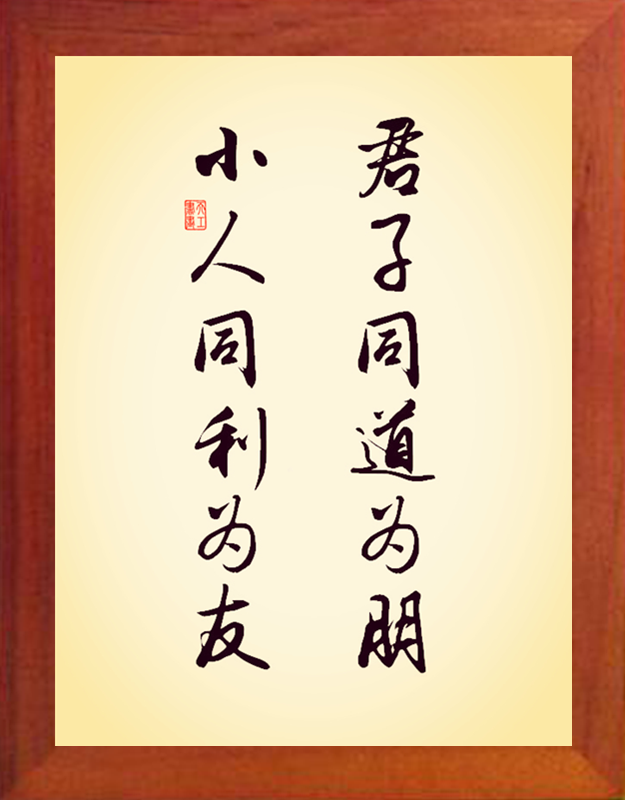 君子同道为朋
小人同利为友